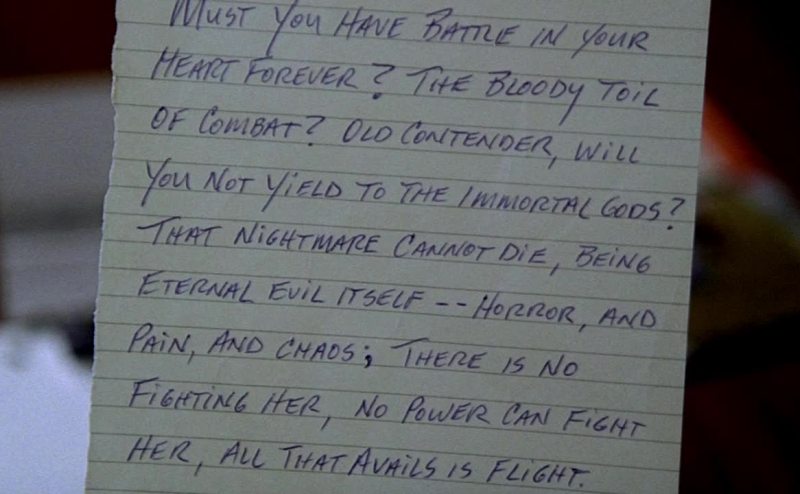 MUST YOU HAVE BATTLE IN YOUR
HEART FOREVER? THE BLOODY TOIL
OF COMBAT? OLD CONTENDER, WILL
YOU NOT YIELD TO THE IMMORTAL GODS?
THAT NIGHTMARE CANNOT DIE, BEING
ETERNAL EVIL ITSELF -- HORROR, AND
PAIN, AND CHAOS; THERE IS NO
FIGHTING HER, NO POWER CAN FIGHT
HER, ALL THAT AVAILS IS FLIGHT.